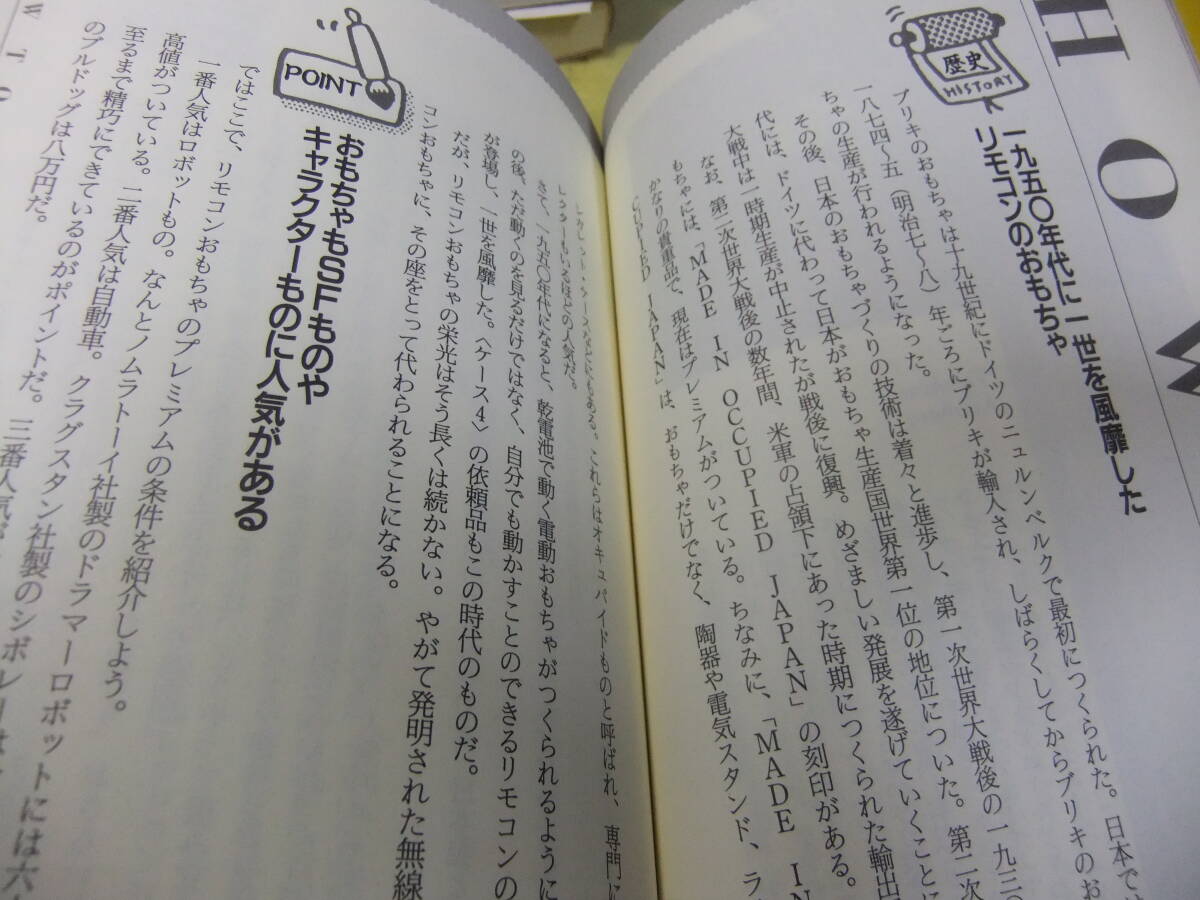 HOW
歴史
HISTORY
一九五〇年代に一世を風靡した
リモコンのおもちゃ
ブリキのおもちゃは十九世紀にドイツのニュルンベルクで最初につくられた。日本では
一八七四〜五（明治七〜八）年ごろにブリキが輸入され、しばらくしてからブリキのお
ちゃの生産が行われるようになった。
その後、日本のおもちゃづくりの技術は着々と進歩し、第一次世界大戦後の一九三〇
代には、ドイツに代わって日本がおもちゃ生産国世界第一位の地位についた。第二次
大戦中は一時期生産が中止されたが戦後に復興。めざましい発展を遂げていくことに
なお、第二次世界大戦後の数年間、米軍の占領下にあった時期につくられた輸出
もちゃには、「MADE IN OCCUPIED JAPAN」の刻印がある。
かなりの貴重品で、現在はプレミアムがついている。ちなみに、「MADE IN
CUPIED JAPAN」は、おもちゃだけでなく、陶器や電気スタンド、ラ
などにもある。これらはオキュパイドものと呼ばれ、専門に
レクターもいるほどの人気だ。
さて、一九五〇年代になると、乾電池で動く電動おもちゃがつくられるように
の後、ただ動くのを見るだけではなく、自分でも動かすことのできるリモコンの
が登場し、一世を風靡した。〈ケース4〉の依頼品もこの時代のものだ。
だが、リモコンおもちゃの栄光はそう長くは続かない。やがて発明された無線
コンおもちゃに、その座をとって代わられることになる。
POINT
おもちゃもSFものや
キャラクターものに人気がある
ではここで、リモコンおもちゃのプレミアムの条件を紹介しよう。
一番人気はロボットもの。なんとノムラトーイ社製のドラマーロボットには六
高値がついている。二番人気は自動車。クラグスタン社製のシボレー
至るまで精巧にできているのがポイントだ。三番人気
のブルドッグは八万円だ。